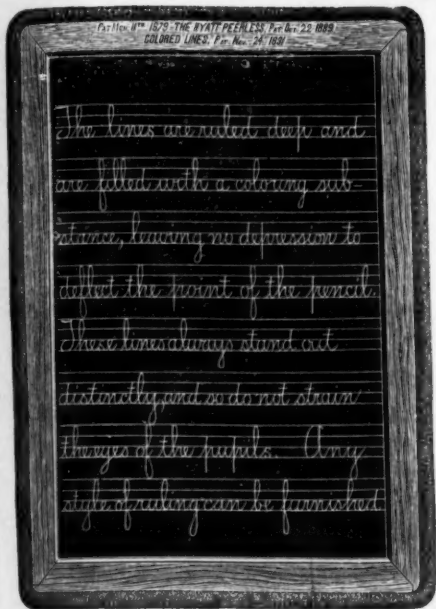 Pat Mch 11th 1879. THE HYATT PEERLESS, Pat Dec. 22 1889
COLORED LINES, Pat Nov. 24. 1891
The lines are ruled deep and
are filled with a coloring sub-
stance, leaving no depression to
deflect the point of the pencil.
These lines always stand out
distinctly, and so do not strain
the eyes of the pupils. Any
style of ruling can be furnished